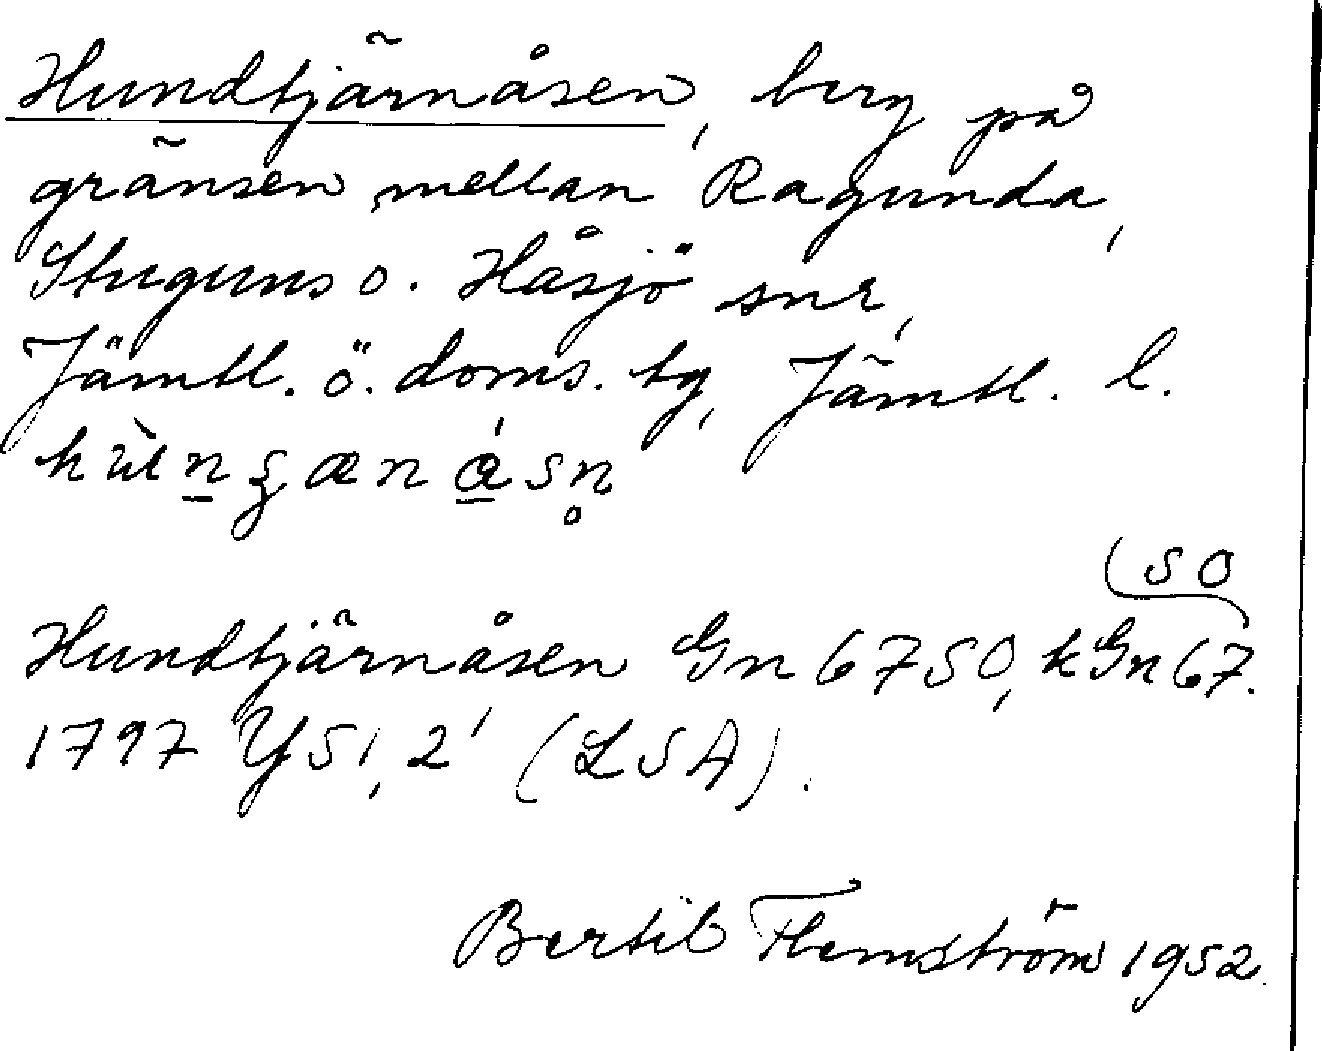 Hundtjärnåsen, berg på
gränsen mellan Ragunda,
Stuguns o. Håsjö snr,
Jämtl. ö. doms. tg, Jämtl. l.
(SO
Hundtjärnåsen Gn 67 SO, kGn 67.
1797 Y51, 2' (LSA).
Bertil Flemström 1952.